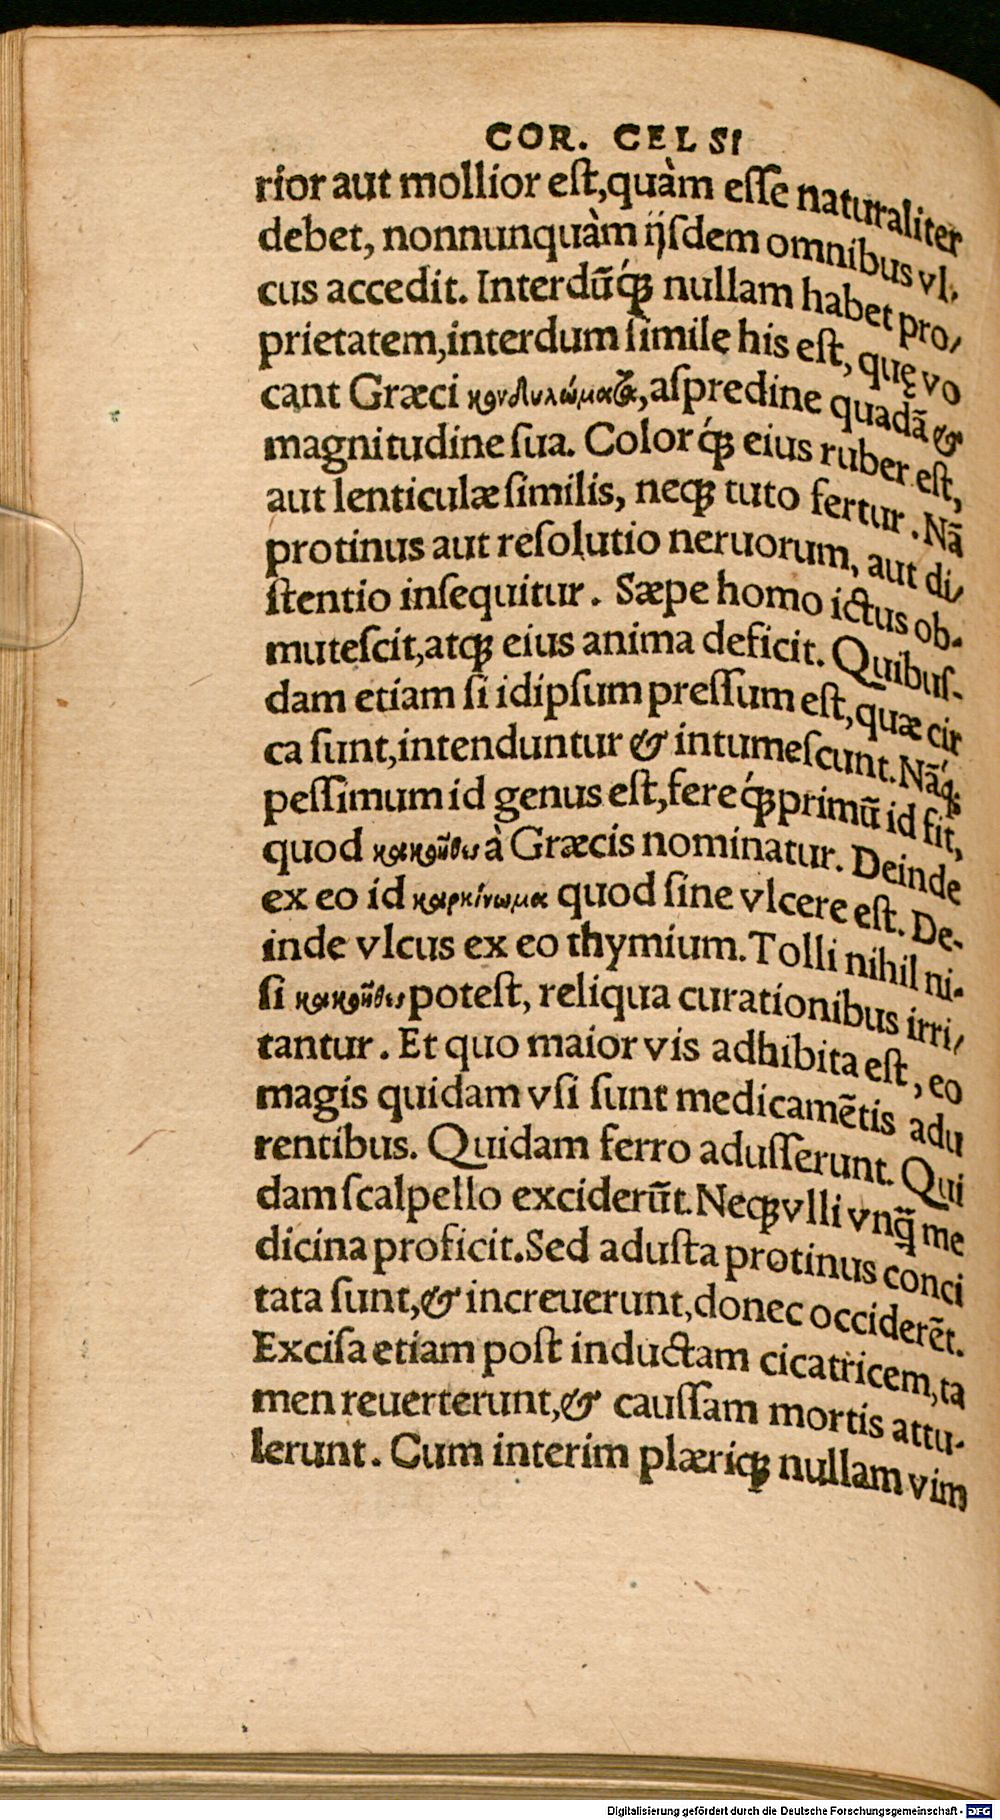 COR. CELSI
rior aut mollior eſt, quàm eſſe naturaliter
debet, nonnunquàm ijſdem omnibus vl-
cus accedit. Interdũq́ꝫ nullam habet pro/
prietatem, interdum ſimile his eſt, quę vo
cant Græci κονδυλώματα, aſpredine quadã &
magnitudine ſua. Color q́ꝫ eius ruber eſt,
aut lenticulæ ſimilis, neqꝫ tuto fertur. Nã
protinus aut reſolutio neruorum, aut di/
ſtentio inſequitur. Sæpe homo ictus ob-
muteſcit, atqꝫ eius anima deficit. Quibuſ-
dam etiam ſi idipſum preſſum eſt, quæ cir
ca ſunt, intenduntur & intumeſcunt. Nãq́ꝫ
peſſimum id genus eſt, fere q́ꝫ primũ id fit,
quod κακοῦθες à Græcis nominatur. Deinde
ex eo id καρκίνωμα quod ſine vlcere eſt. De-
inde vlcus ex eo thymium. Tolli nihil ni-
ſi κακοῦθες poteſt, reliqua curationibus irri/
tantur. Et quo maior vis adhibita eſt, eo
magis quidam vſi ſunt medicamẽtis adu
rentibus. Quidam ferro aduſſerunt. Qui
dam ſcalpello exciderũt. Neqꝫ vlli vnq̃ me
dicina proficit. Sed aduſta protinus conci
tata ſunt, & increuerunt, donec occiderẽt.
Exciſa etiam poſt inductam cicatricem, ta
men reuerterunt, & cauſſam mortis attu-
lerunt. Cum interim plæriqꝫ nullam vim
Digitalisierung gefördert durch die Deutsche Forschungsgemeinschaft - DFG